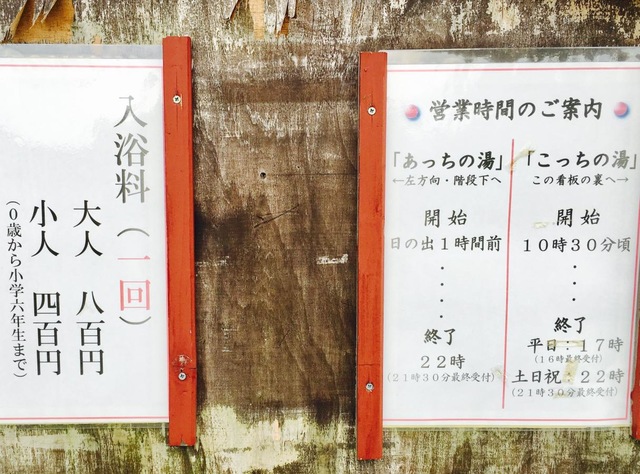 営業時間のご案内
「あっちの湯」
←左方向・階段下へ
開始
日の出1時間前
・
・
・
・
終了
22時
(21時30分最終受付)
「こっちの湯」
この看板の裏へ→
開始
10時30分頃
・
・
・
・
終了
平日:17時
(16時最終受付)
土日祝:22時
(21時30分最終受付)
入浴料(一回)
大人 八百円
小人 四百円
(0歳から小学六年生まで)